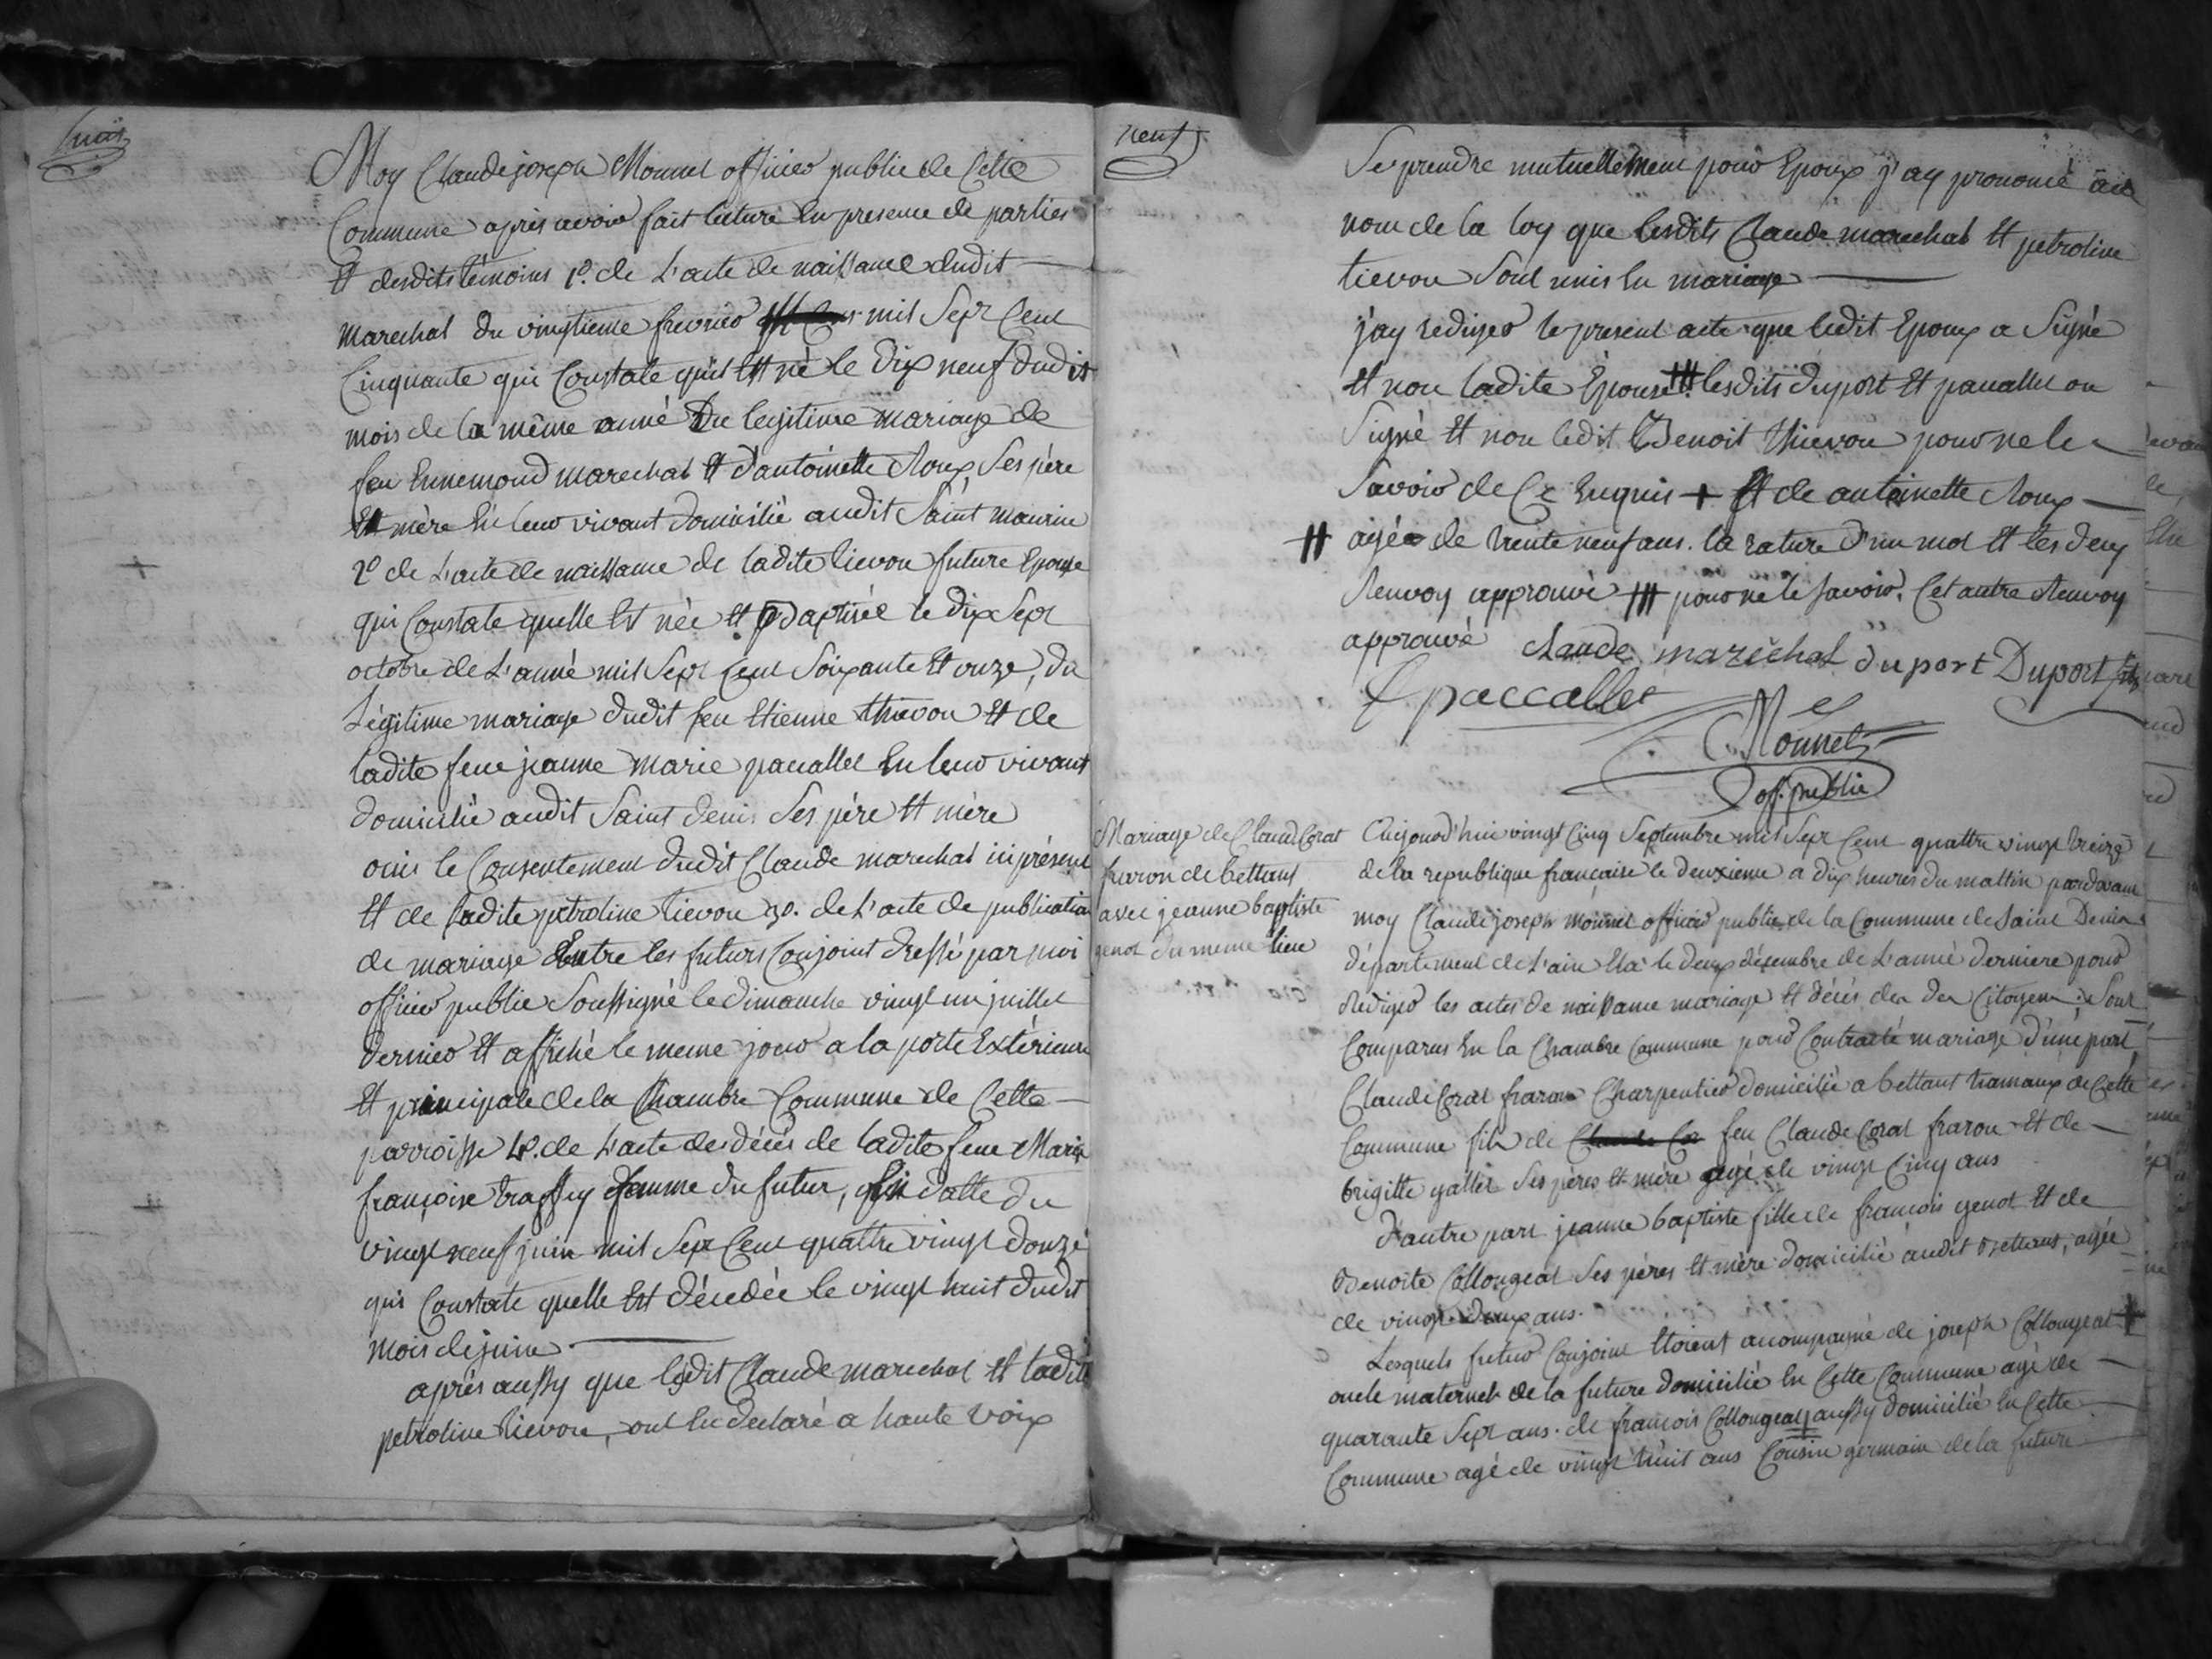 huit
Moy Claude joseph Monnet officier public de Cette
Commune après avoir fait lecture En presence de parties
Et desdits témoins 1º. de L'acte de naissance dudit
marechal du vingtieme fevrier mil Sept Cent
Cinquante qui Constate qu'il Est né le dix neuf dudit
mois de la même anné Du legitime mariage de
feu Ennemond marechal Et d'antoinette Roux, Ses père
Et mère En leur vivant domicilié audit Saint maurice
2º de L'acte de naissance de ladite tievon future Epouse
qui Constate quelle Est née Et Baptisée le dix Sept
octobre de L'anné mil Sept Cent Soixante Et onze, du
Légitime mariage dudit feu Etienne thievon Et de
ladite feue jeanne marie pacallet En leur vivant
domicilié audit Saint denis Ses père Et mère
ouis le Consentement dudit Claude marechal ici présent
Et de ladite petroline tievon 3º. de L'acte de publication
de mariage Entre les futurs Conjoint dressé par moi
officier public Soussigné le dimanche vingt un juillet
dernier Et affiché le meme jour a la porte Extérieure
Et principale de la Chambre Commune de Cette
parroisse 4º. de L'acte de décés de ladite feue Marie
françoise traffey femme du futur, En datte du
vingt neuf juin mil Sept Cent quattre vingt douze
qui Constate quelle Est décédée le vingt huit dudit
mois de juin
après aussy que ledit Claude marechal Et ladite
petroline tievon, ont Eu declaré a haute voix
neuf
Se prendre mutuellement pour Epoux j'ay prononcé au
nom de la loy que lesdits Claude marechal Et petroline
tievon Sont unis En mariage
j'ay rediger le present acte que ledit Epoux a Signé
Et non ladite Epouse # lesdits duport Et pacallet on
Signé Et non ledit Benoit thievon pour ne le
Savoir de Ce Enquis + Et de antoinette Roux
# agée de trente neuf ans. la rature d'un mot Et les deux
Renvoy approuvé # pour ne le savoir. Cet autre Renvoy
approuvé Claude marèchal duport Duport fils
paccallet
Monnet
off. public
Mariage de Claud Corat
fraron de bettant
avec jeanne baptiste
genot du meme lieu
Aujourd'hui vingt Cinq Septembre mil Sept Cent quattre vingt treize
de la republique française le deuxieme a dix heures du mattin pardevant
moy Claude joseph monnet officier public de la Commune de Saint Denis
département de L'ain Elu le deux décembre de L'anné derniere pour
Rediger les actes de naissance mariage Et décés des Citoyens. Sont
Comparus En la Chambre Commune pour Contracté mariage d'une part
Claude Corat fraron Charpentier domicilié a bettant hamaux de Cette
Commune fils de Claude Cor feu Claude Corat fraron Et de
brigitte gallet Ses pères Et mère agé de vingt Cinq ans
D'autre part jeanne baptiste fille de francois genot Et de
Benoite Collongeat Ses pères Et mère domicilié audit Bettant, agée
de vingt deux ans.
Lesquels futur Conjoint Etoient acompagné de joseph Collongeat +
oncle maternel de la future domicilié En Cette Commune agé de
quarante Sept ans. de francois Collongeat aussy domicilié En Cette
Commune agé de vingt huit ans Cousin germain de la future